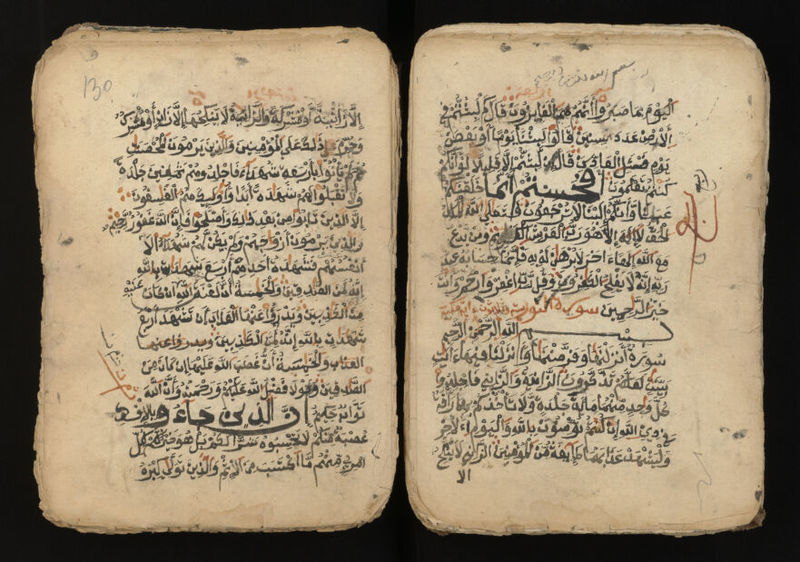 اليوم بما صبروا أنهم هم الفايزون قال كم لبثتم في
الارض عدد سنين قالوا لبثنا يوما او بعض
يوم فسئل العادين قال ان لبثتم الا قليلا لو انكم
كنتم تعلمون افحسبتم انما خلقنكم
عبثا وانكم الينا لا ترجعون فتعلى الله الملك
الحق لا اله الا هو رب العرش الكريم ومن يدع
مع الله الها اخر لا برهن له به فانما حسابه عند
ربه انه لا يفلح الكفرون وقل رب اغفر وارحم وانت
خير الرحمين سورة النور
بسم الله الرحمن الرحيم
سورة انزلنها وفرضنها وانزلنا فيها ءايت
بينت لعلكم تذكرون الزانية والزاني فاجلدوا
كل وحد منهما ماية جلدة ولا تاخذكم بهما رافة
في دين الله ان كنتم تومنون بالله واليوم الاخر
وليشهد عذابهما طايفة من المومنين الزاني لا ينكح
الا
130
الا زانية او مشركة والزانية لا ينكحها الا زان او مشرك
وحرم ذلك على المومنين والذين يرمون المحصنت
ثم لم ياتوا باربعة شهداء فاجلدوهم ثمنين جلدة
ولا تقبلوا لهم شهدة ابدا واوليك هم الفسقون
الا الذين تابوا من بعد ذلك واصلحوا فان الله غفور رحيم
والذين يرمون ازوجهم ولم يكن لهم شهداء الا
انفسهم فشهدة احدهم اربع شهدات بالله
انه لمن الصدقين والخمسة ان لعنة الله عليه ان كان
من الكذبين ويدرؤا عنها العذاب ان تشهد اربع
شهدت بالله انه لمن الكذبين
والخمسة ان غضب الله عليها ان كان من
الصدقين ولولا فضل الله عليكم ورحمته وان الله
تواب حكيم ان الذين جاءو بالافك
عصبة منكم لا تحسبوه شرا لكم بل هو خير لكم لكل
امري منهم ما اكتسب من الاثم والذي تولى كبره